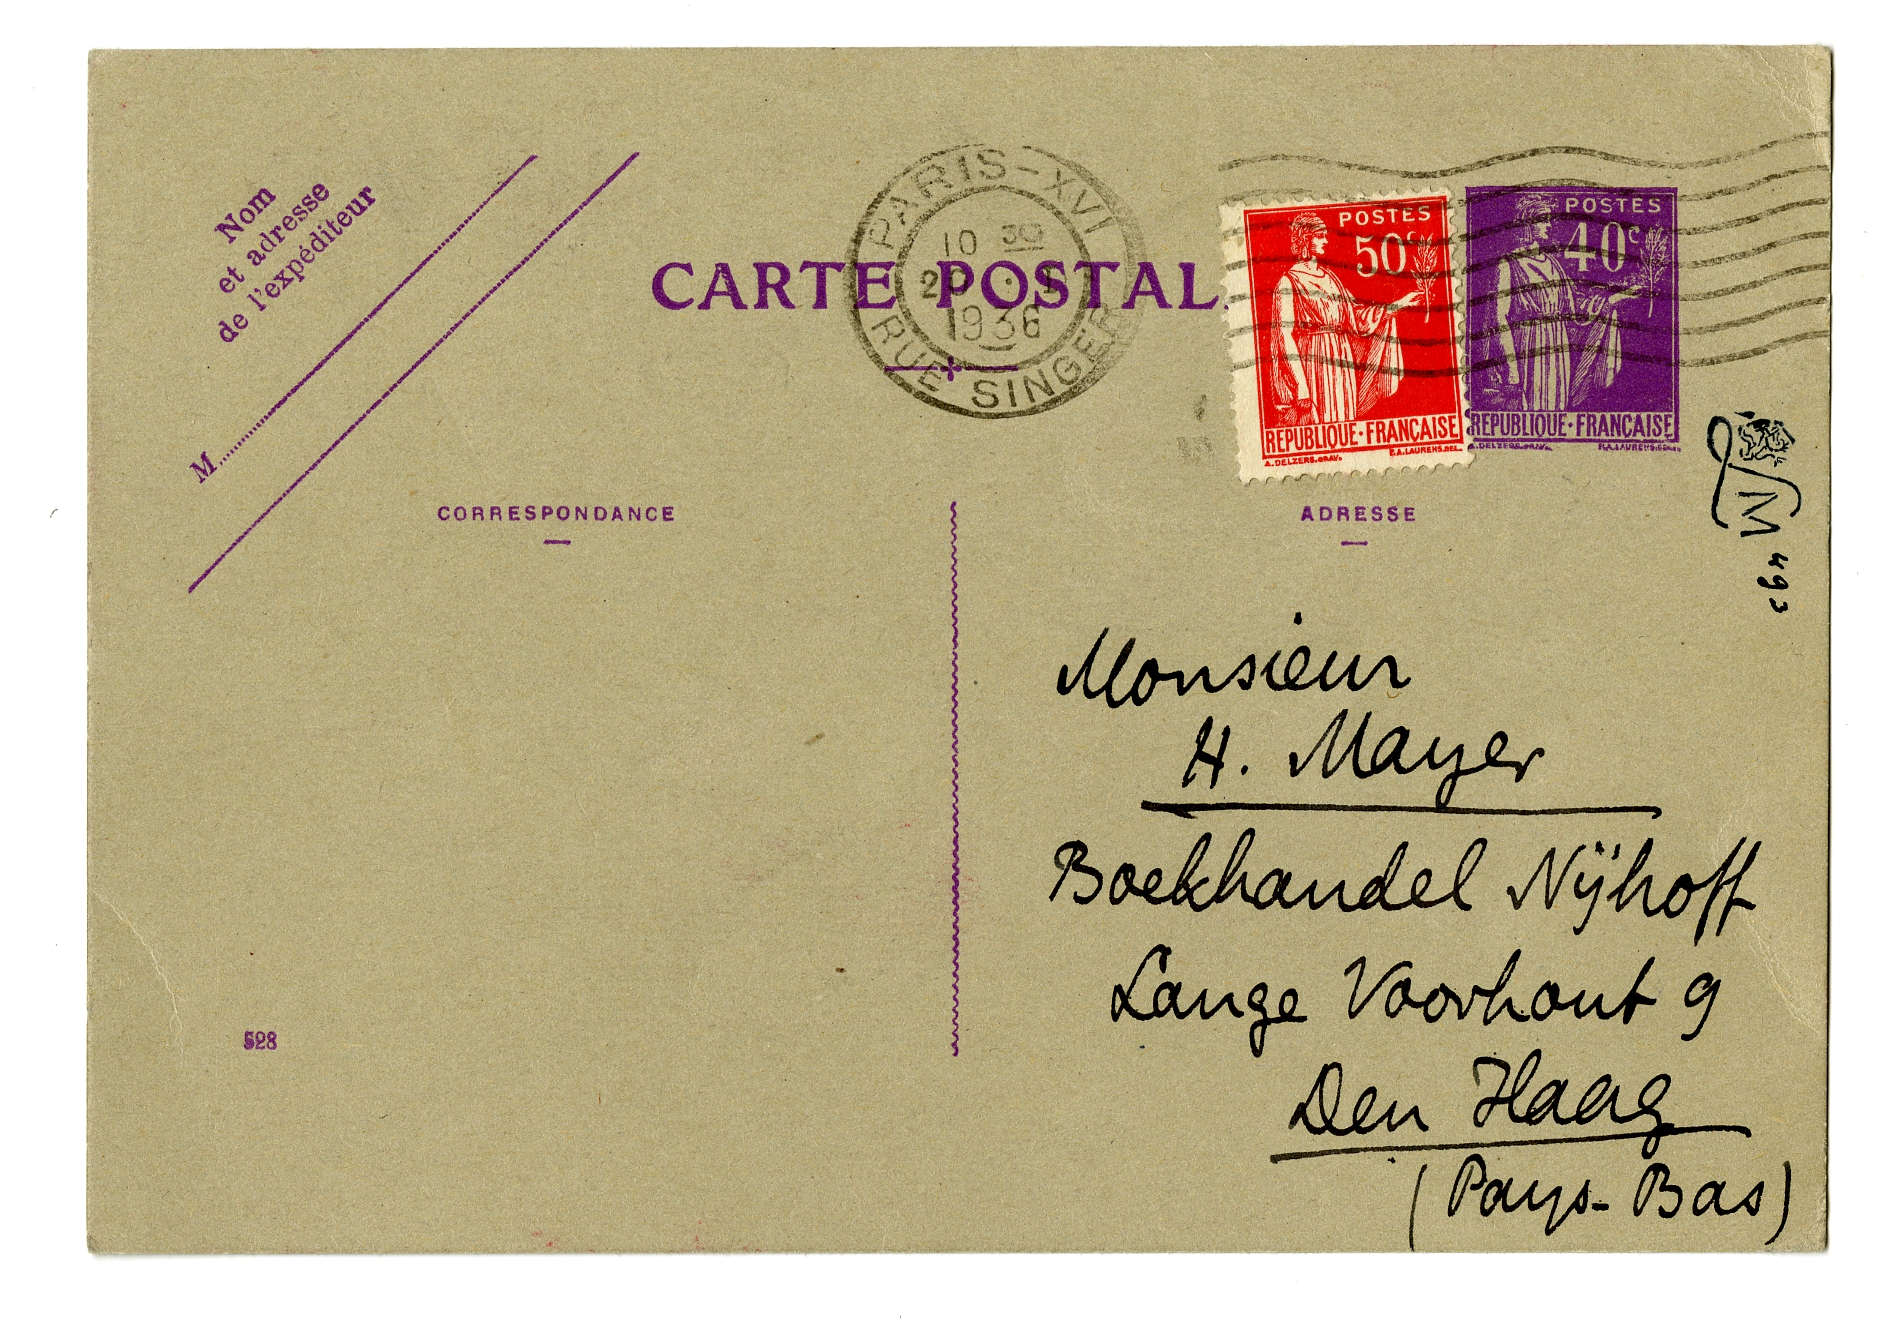 Nom
et adresse
de l'expéditeur
M
PARIS-XVI
10 30
20 · 1
1936
RUE SINGER
CARTE POSTAL
POSTES
50c
REPUBLIQUE·FRANÇAISE
A.DELZERS.GRAV. P.A.LAURENS.DEL.
POSTES
40c
REPUBLIQUE·FRANÇAISE
A.DELZERS.GRAV. P.A.LAURENS.DEL.
M
493
CORRESPONDANCE
ADRESSE
Monsieur
H. Mayer
Boekhandel Nijhoff
Lange Voorhout 9
Den Haag
(Pays-Bas)
528